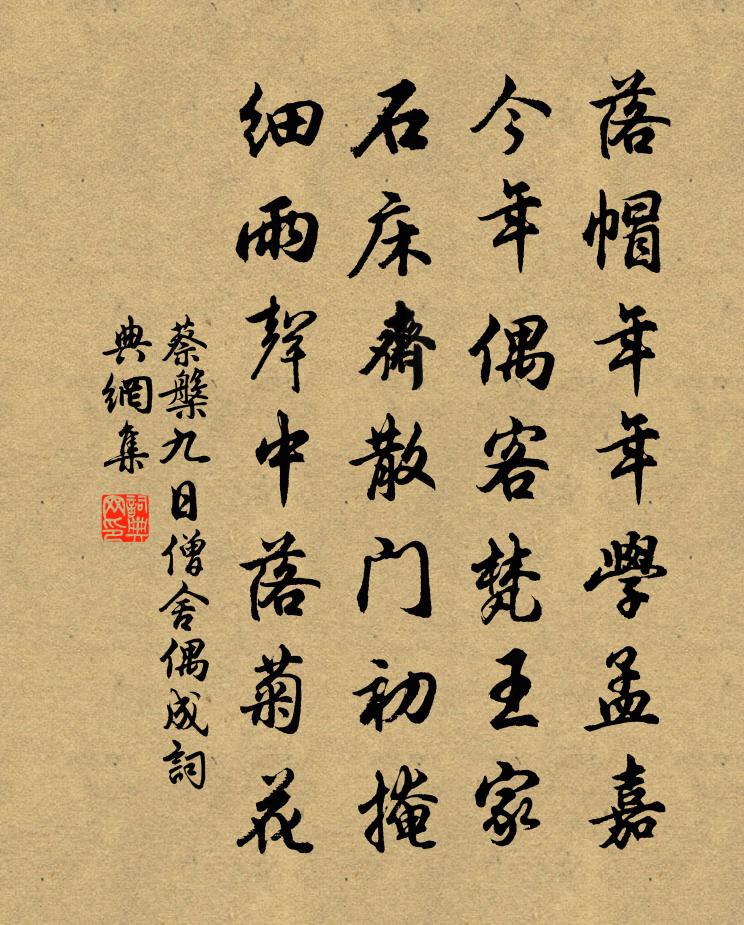 落帽年年學孟嘉
今年偶客梵王家
石床齋散门初掩
细雨聲中落菊花
蔡槃九日僧舍偶成詞
典網集
詞典网印